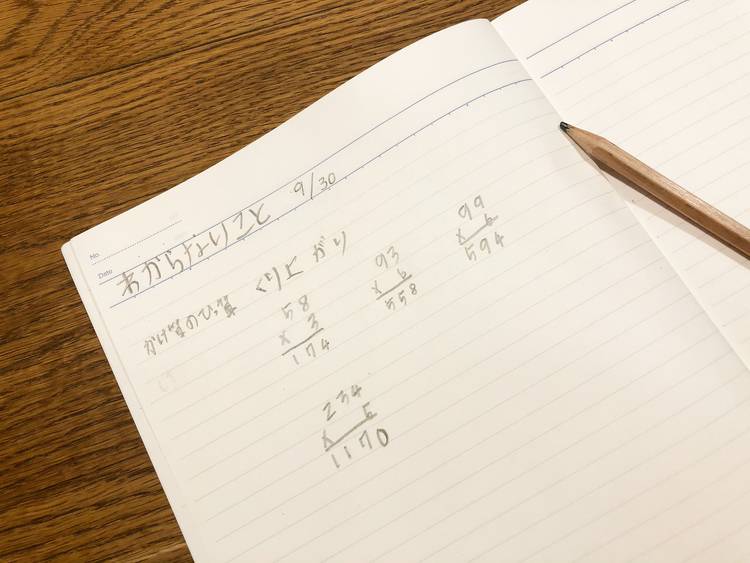 No.
Date
わからないこと 9/30
かけ算のひっ算 くり上がり
58
× 3
174
93
× 6
558
99
× 6
594
234
× 5
1170